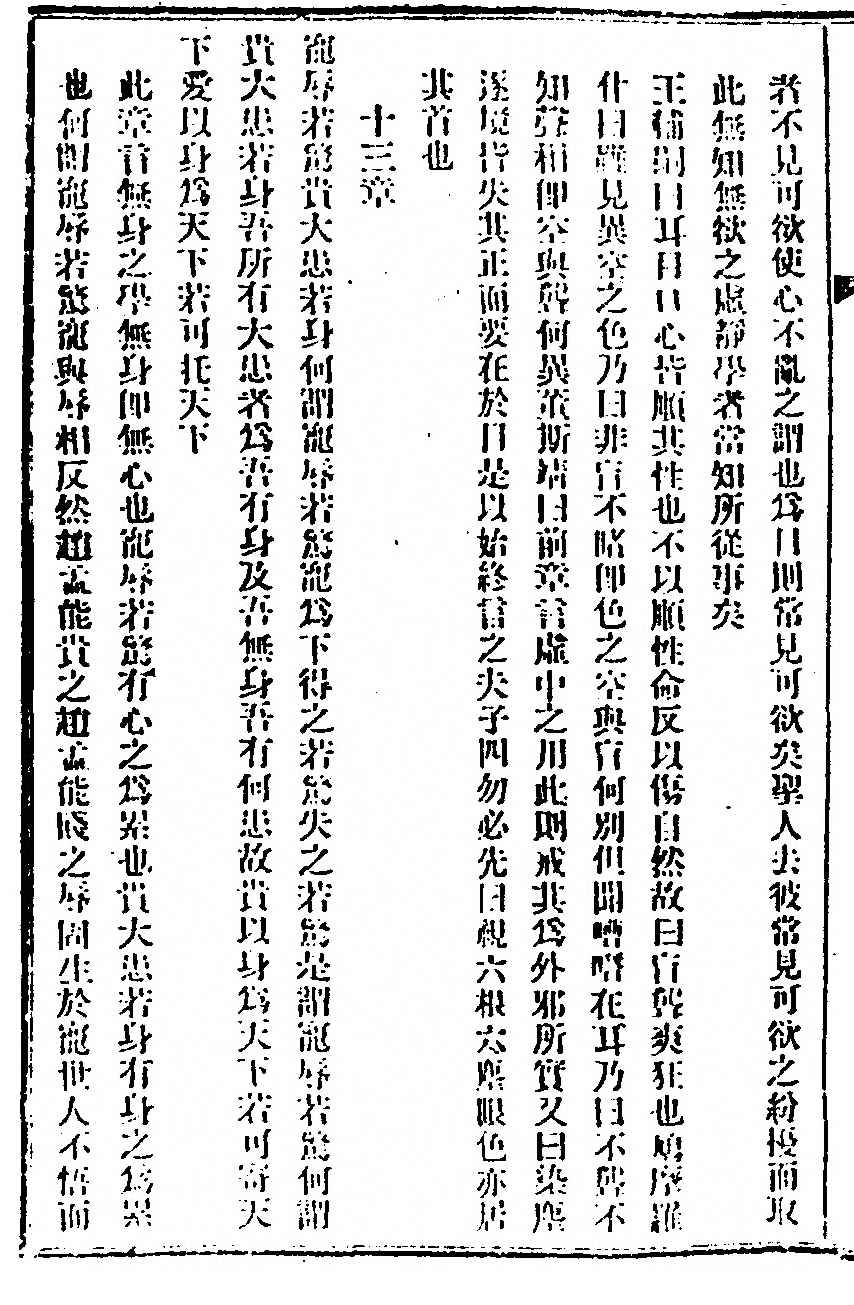 者不見可欲使心不亂之謂也爲目則常見可欲矣聖人去彼常見可欲之紛擾而取
此無知無欲之虛靜學者當知所從事矣
王輔嗣曰耳目口心皆順其性也不以順性命反以傷自然故曰盲聾爽狂也鳩摩羅
什曰雖見異空之色乃曰非盲不睹卽色之空與盲何別但聞嘈嘈在耳乃曰不聾不
知聲相卽空與聾何異董斯靖曰前章言虛中之用此則戒其爲外邪所實又曰染塵
逐境皆失其正而要在於目是以始終言之夫子四勿必先曰視六根六塵眼色亦居
其首也
十三章
寵辱若驚貴大患若身何謂寵辱若驚寵爲下得之若驚失之若驚是謂寵辱若驚何謂
貴大患若身吾所有大患者爲吾有身及吾無身吾有何患故貴以身爲天下若可寄天
下愛以身爲天下若可托天下
此章言無身之學無身卽無心也寵辱若驚有心之爲累也貴大患若身有身之爲累
也何謂寵辱若驚寵與辱相反然趙孟能貴之趙孟能賤之辱固生於寵世人不悟而